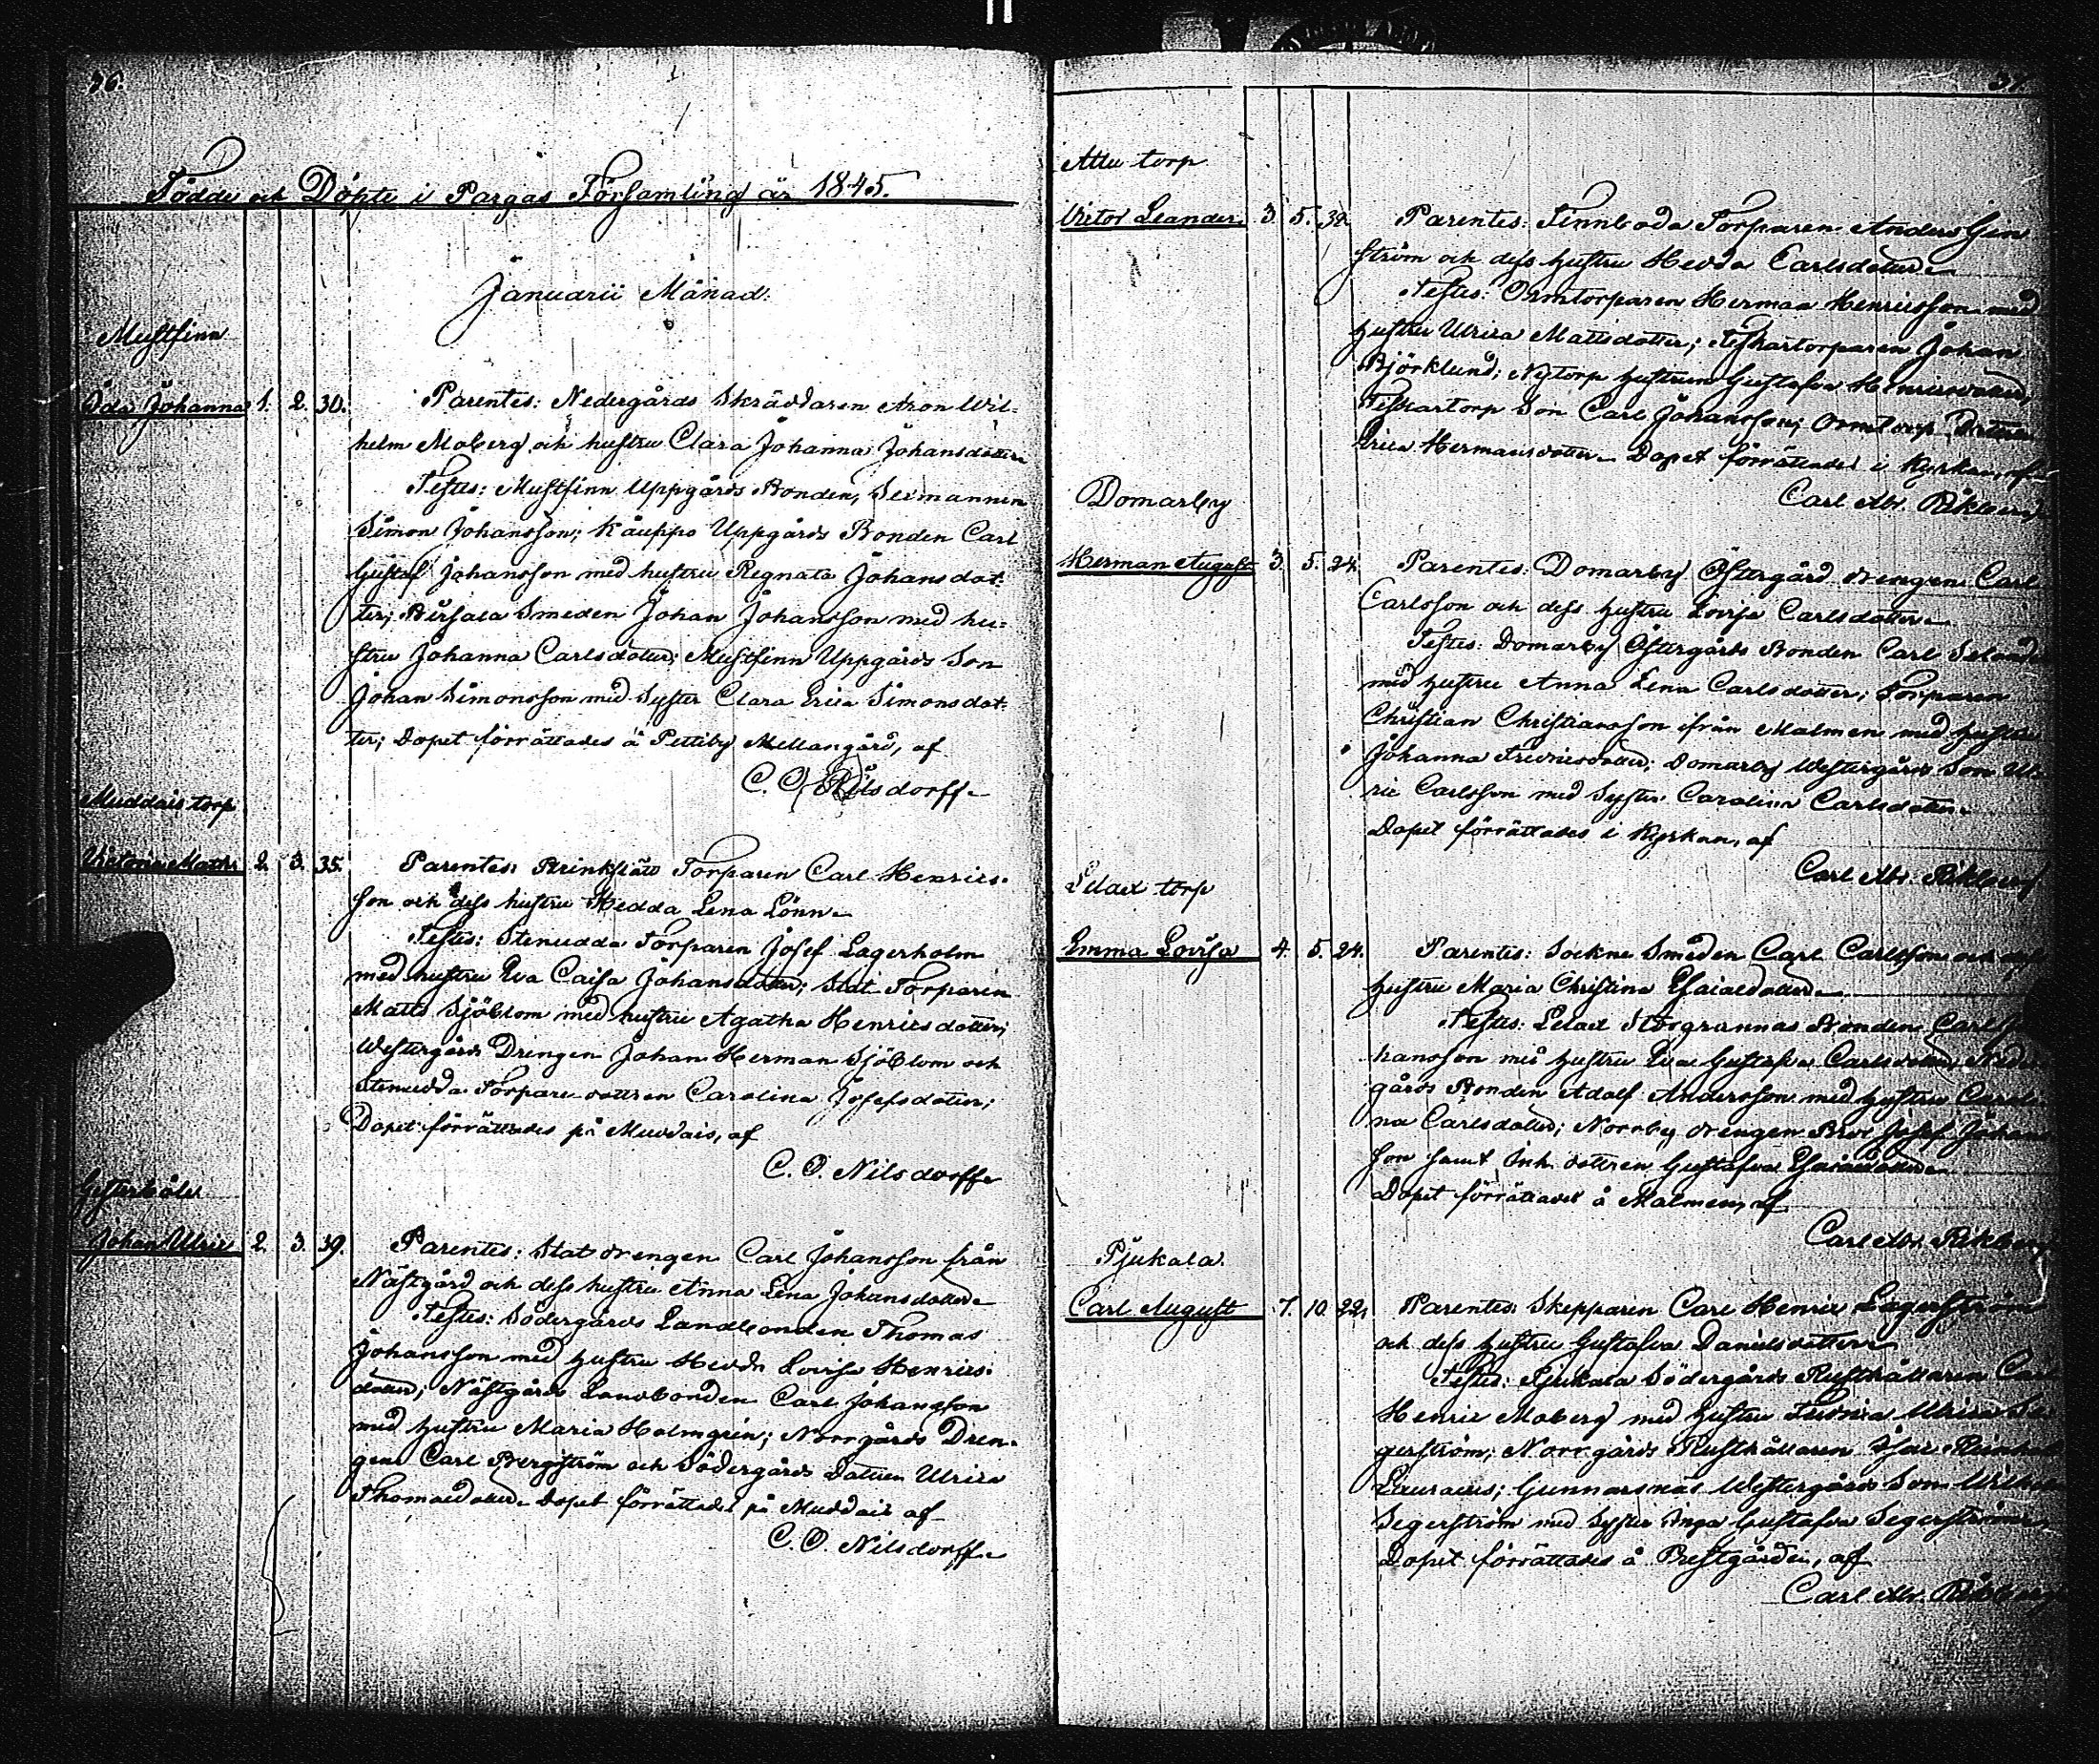 36.
Födde och Döpte i Pargas Församling år 1845.
Januarii Månad.
Mustfinn
Ida Johanna 1. 2. 30. Parentes: Nedergårds Skräddaren Aron Wil-
helm Moberg och hustru Clara Johanna Johansdotter
Testes: Mustfinn Uppgårds Bonden, Sexmannen
Simon Johansson; Kauppo Uppgårds Bonden Carl
Gustaf Johansson med hustru Regnata Johansdot-
ter; Smeden Johan Johansson med hu-
stru Johanna Carlsdotter; Mustfinn Uppgårds Son
Johan Simonsson med Syster Clara Erica Simonsdot-
ter; Dopet förrättades å Pettiby Mellangård, af
C. O. Nilsdorff
Muddais torp
Victoria Math: 2. 3. 35. Parentes: Brinkslätt Torparen Carl Henrics-
son och dess hustru Hedda Lena Lönn
Testes: Stenudda Torparen Josef Lagerholm
med hustru Eva Caisa Johansdotter; Torparen
Matts Sjöblom med hustru Agatha Henricsdotter;
Westergårds Drengen Johan Herman Sjöblom och
Stenudda Torpare dottren Carolina Josefsdotter;
Dopet förrättades på Muddais, af
C. O. Nilsdorff
Gysterböle
Johan Ulric 2. 3. 39. Parentes: Statdrengen Carl Johansson från
Nästgård och dess hustru Anna Lena Johansdotter
Testes: Södergårds Landbonden Thomas
Johansson med hustru Hedda Lovisa Henrics-
dotter; Nästgårds Landbonden Carl Johansson
med hustru Maria Holmgrén; Norrgårds Dren-
gen Carl Bergström och Södergårds Dottren Ulrica
Thomasdotter. Dopet förrättades på Muddais af
C. O. Nilsdorff
37.
Attu torp
Victor Leander. 3. 5. 32. Parentes: Finnboda Torparen Anders Gen
ström och dess hustru Hedda Carlsdotter
Testes: Ormtorparen Herman Henricsson med
hustru Ulrica Mattsdotter; Fiskartorparen Johan
Björklund; Nytorp hustrun Gustafva Henricsdotter,
Fiskartorp Son Carl Johansson; Ormtorp Dottren
Erica Hermansdotter. Dopet förrättades i Kyrkan, af
Carl Abr. Rikberg
Domarby
Herman August 3. 5. 24. Parentes: Domarby Östergård drengen Carl
Carlsson och dess hustru Lovisa Carlsdotter
Testes: Domarby Östergårds Bonden Carl
med hustru Anna Lena Carlsdotter; Torparen
Christian Christiansson ifrån Malmen med hustru
Johanna Fredricsdotter; Domarby Westergårds Son Ul-
ric Carlsson med Syster Carolina Carlsdotter.
Dopet förrättades i Kyrkan, af
Carl Abr. Rikberg
Lelax torp
Emma Lovisa 4. 5. 24. Parentes: Sockne Smeden Carl Carlsson och dess
hustru Maria Christina Esaiædotter
Testes: Lelax Storgrannas Bonden Carl Jo
hansson med hustru Eva Gustafva Carlsdotter, Neder
gårds Bonden Adolf Andersson med hustru Caroli
na Carlsdotter; Norrby drengen Josef Johans
son samt Inh. dottren Gustafva Esaiædotter
Dopet förrättades å Malmen, af
Carl Abr. Rikberg
Pjukala.
Carl August 7. 10. 22. Parentes: Skepparen Carl Henric Lagerström
och dess hustru Gustafva Danielsdotter
Testes: Pjukala Södergårds Rusthållaren Carl
Henric Moberg med hustru Fredrica Ulrica Se
gerström; Norrgårds Rusthållaren
Gunnarsnäs Westergårds Son Wilhelm
Segerström med Syster Inga Gustafva Segerström
Dopet förrättades å Prestgården, af
Carl Abr. Rikberg